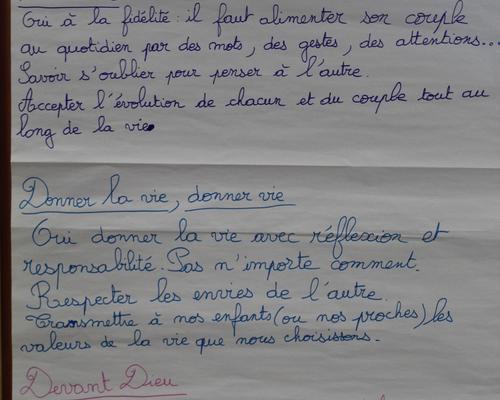 Oui à la fidélité : il faut alimenter son couple
au quotidien par des mots, des gestes, des attentions...
Savoir s'oublier pour penser à l'autre.
Accepter l'évolution de chacun et du couple tout au
long de la vie.
Donner la vie, donner vie
Oui donner la vie avec réflexion et
responsabilité. Pas n'importe comment.
Respecter les envies de l'autre.
Transmettre à nos enfants (ou nos proches) les
valeurs de la vie que nous choisissons.
Devant Dieu